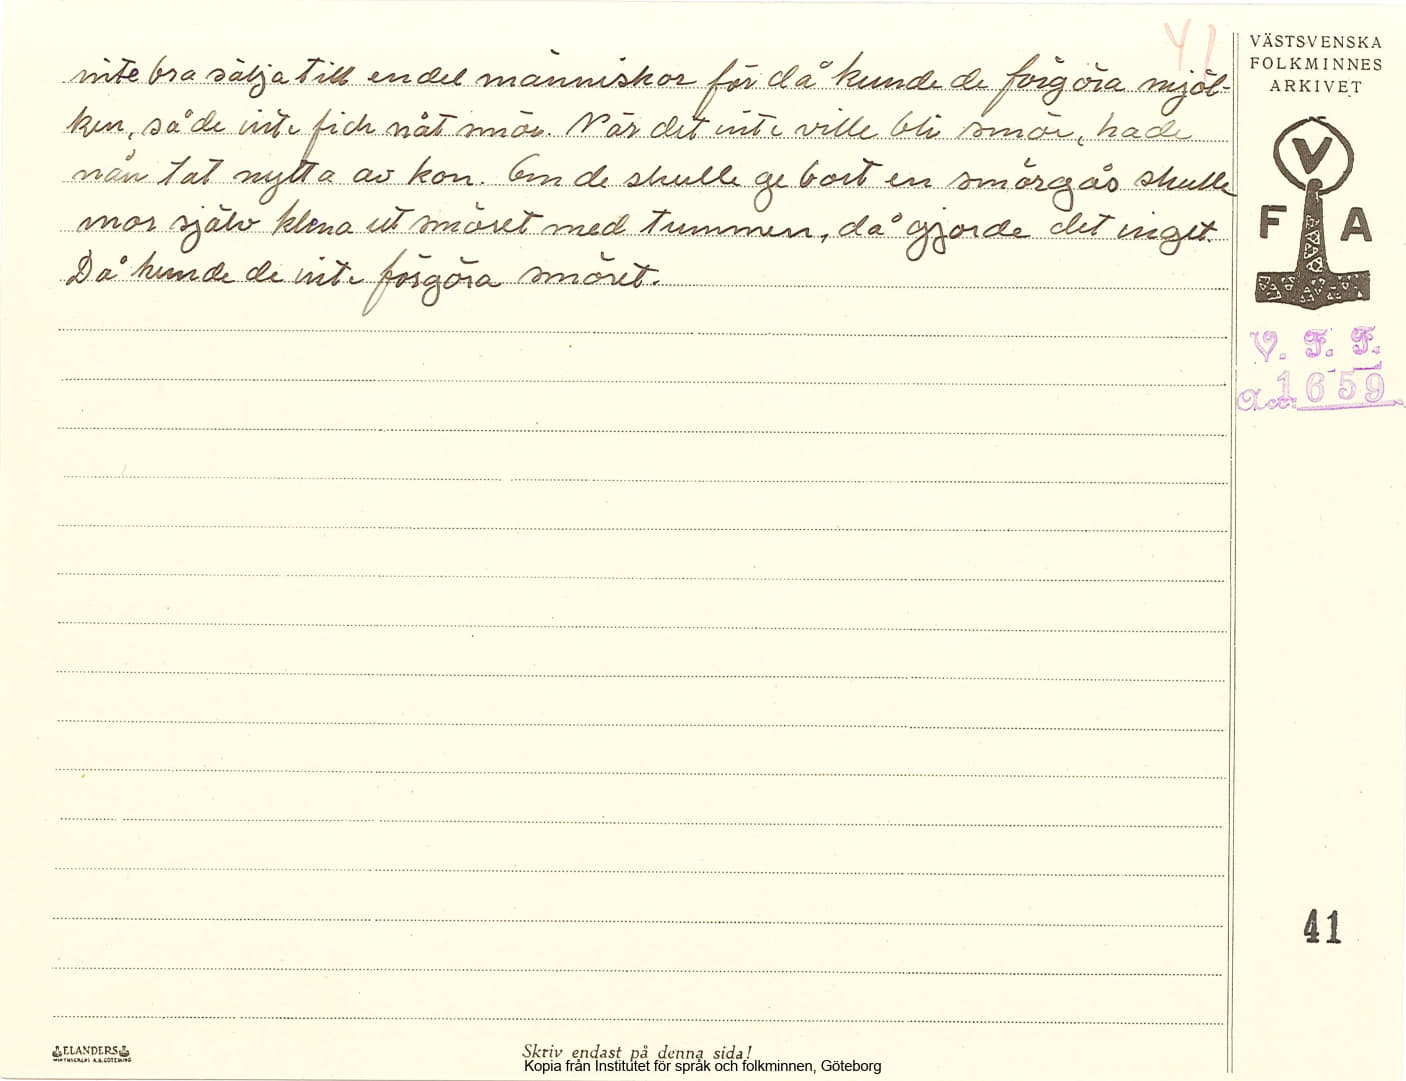 41
inte bra sälja till en del människor för då kunde de förgöra mjöl-
ken, så de inte fick nåt smör. När det inte ville bli smör, hade
nån tat nytta av kon. Om de skulle ge bort en smörgås skulle
mor själv klena ut smöret med tummen, då gjorde det inget.
Då kunde de inte förgöra smöret.
VÄSTSVENSKA
FOLKMINNES
ARKIVET
V
F A
V. F. F.
acc. 1659
41
ELANDERS
Skriv endast på denna sida!
Kopia från Institutet för språk och folkminnen, Göteborg